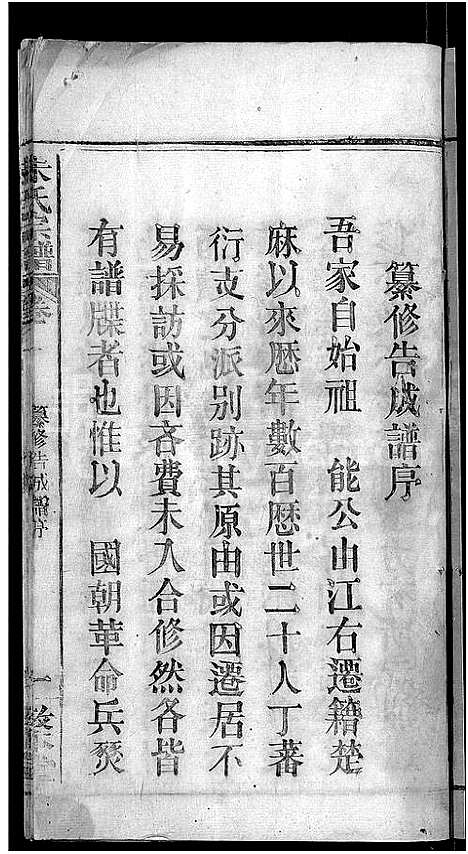 纂修告成譜序
吾家自始祖 能公由江右遷籍楚
麻以來歷年數百歷世二十人丁蕃
衍支分派別跡其原由或因遷居不
易採訪或因吝費未入合修然各皆
有譜牒者也惟以 國朝革命兵燹
朱氏宗譜 卷
纂修告成譜序
一